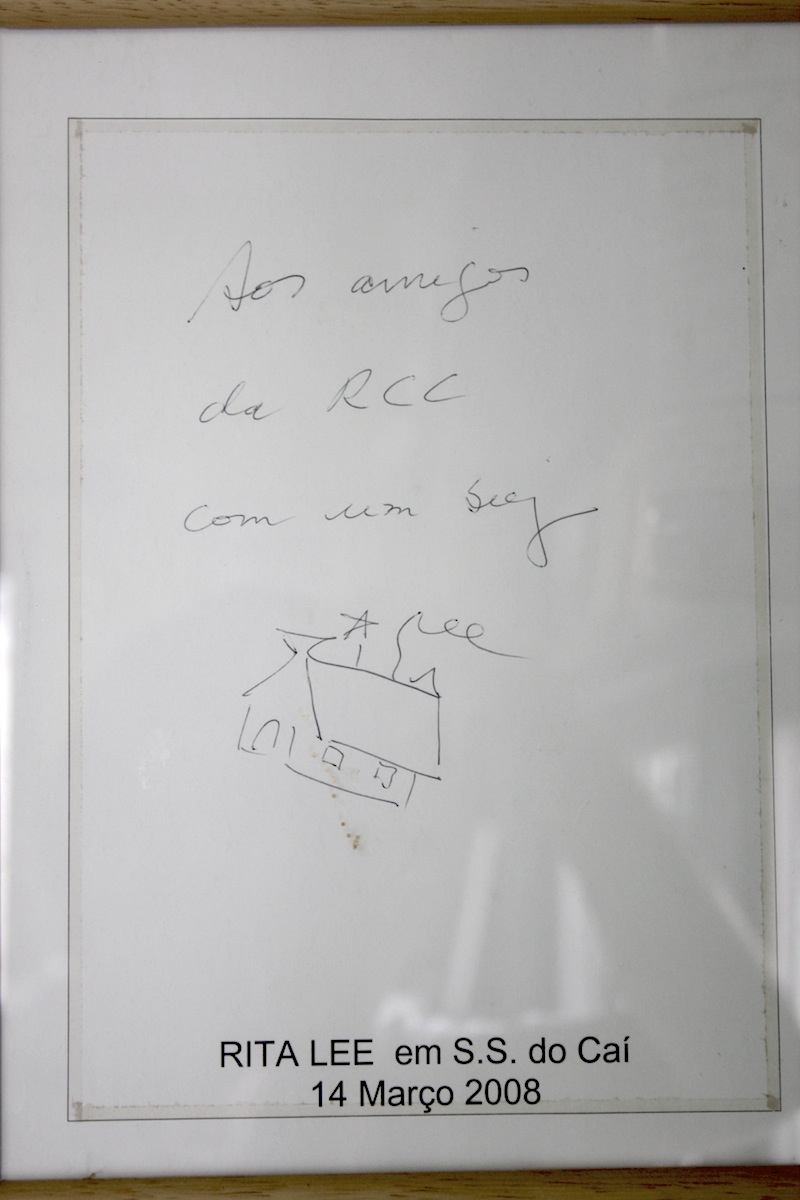 Aos amigos
da RCC
com um beij
Lee
RITA LEE em S.S. do Caí
14 Março 2008